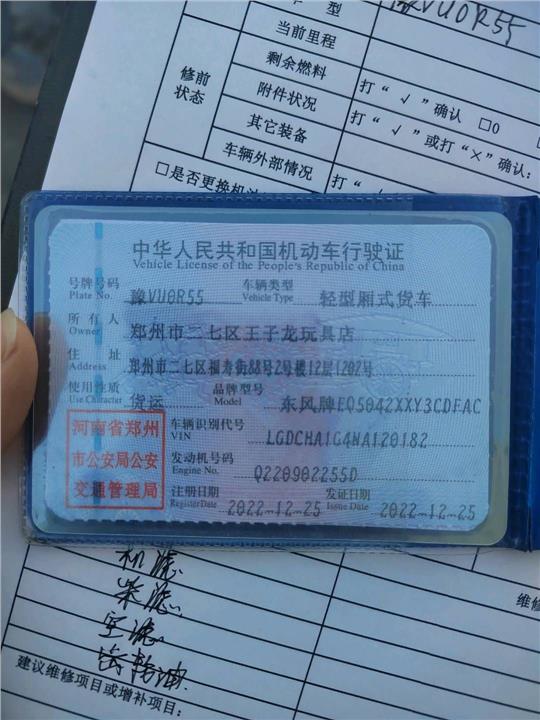 型 豫VU0R55
当前里程
剩余燃料
修前
状态
附件状况 打“√”确认 □0
其它装备 打“√”或打“×”确认:
车辆外部情况 打“
□是否更换机
中华人民共和国机动车行驶证
Vehicle License of the People's Republic of China
号牌号码 豫VU0R55 车辆类型 轻型厢式货车
Plate No. Vehicle Type
所有人 郑州市二七区王子龙玩具店
Owner
住址 郑州市二七区福寿街88号2号楼12层1202号
Address
使用性质 货运 品牌型号 东风牌EQ5042XXY3CDFAC
Use Character Model
河南省郑州
市公安局公安
交通管理局
车辆识别代号 LGDCHA1G4NA120182
VIN
发动机号码 Q220902255D
Engine No.
注册日期 2022-12-25 发证日期 2022-12-25
Register Date Issue Date
机滤
柴滤
空滤
齿轮油
维修
建议维修项目或增补项目: